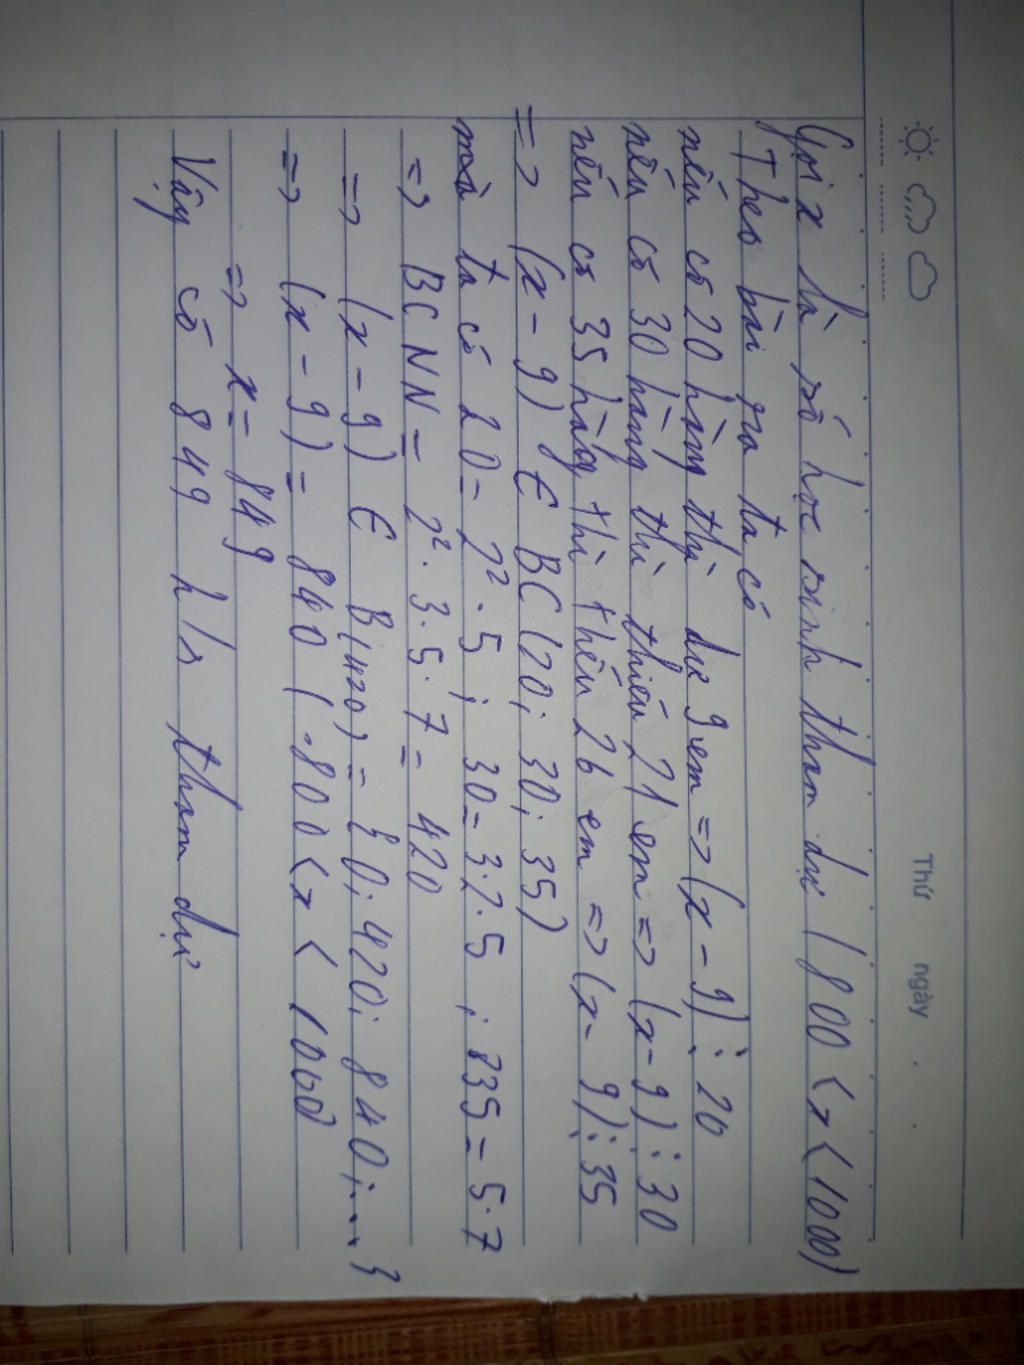 Thứ ngày . .
Gọi x là số học sinh tham dự (800 < x < 1000)
Theo bài ra ta có
nếu có 20 hàng thì dư 9 em => (x - 9) ⋮ 20
nếu có 30 hàng thì thiếu 21 em => (x - 9) ⋮ 30
nếu có 35 hàng thì thếu 26 em => (x - 9) ⋮ 35
=> (x - 9) ∈ BC (20; 30; 35)
mà ta có 20 = 2². 5 ; 30 = 3.2.5 ; 835 = 5.7
=> BCNN = 2². 3.5. 7 = 420
=> (x - 9) ∈ B(420) = {0; 420; 840;...}
=> (x - 9) = 840 (.800 < x < 1000
=> x = 849
Vậy có 849 h/s tham dự